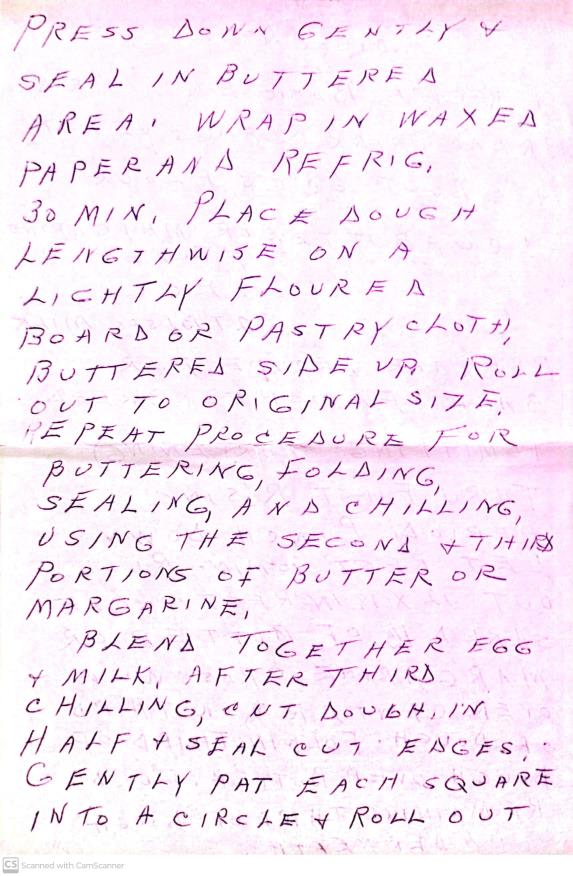 PRESS DOWN GENTLY &
SEAL IN BUTTERED
AREA. WRAP IN WAXED
PAPER AND REFRIG.
30 MIN. PLACE DOUGH
LENGTHWISE ON A
LIGHTLY FLOURED
BOARD OR PASTRY CLOTH,
BUTTERED SIDE UP. ROLL
OUT TO ORIGINAL SIZE.
REPEAT PROCEDURE FOR
BUTTERING, FOLDING,
SEALING, AND CHILLING,
USING THE SECOND & THIRD
PORTIONS OF BUTTER OR
MARGARINE.
BLEND TOGETHER EGG
& MILK. AFTER THIRD
CHILLING, CUT DOUGH, IN
HALF & SEAL CUT EDGES.
GENTLY PAT EACH SQUARE
INTO A CIRCLE & ROLL OUT
CS Scanned with CamScanner